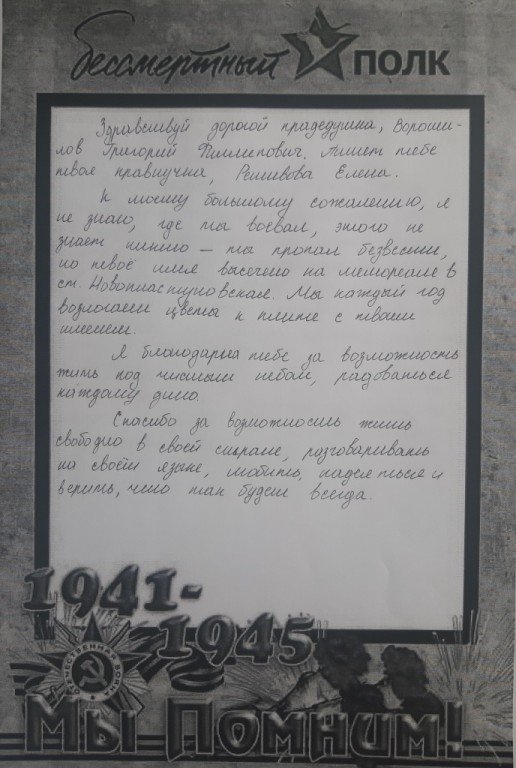 бессмертный ПОЛК
Здравствуй дорогой прадедушка, Вороши-
лов Григорий Филлипович. Пишет тебе
твоя правнучка, Ремивова Елена.
К моему большому сожалению, я
не знаю, где ты воевал, этого не
знает никто – ты пропал безвести,
но твоё имя высечено на мемореале в
ст. Новопластуновская. Мы каждый год
возлогаем цветы к плите с твоим
именем.
Я благодарна тебе за возможность
жить под чистым небом, радоваться
каждому дню.
Спасибо за возможность жить
свободно в своей стране, разговаривать
на своём языке, любить, надеяться и
верить, что так будет всегда.
1941-
1945
ОТЕЧЕСТВЕННАЯ ВОЙНА
Мы Помним!